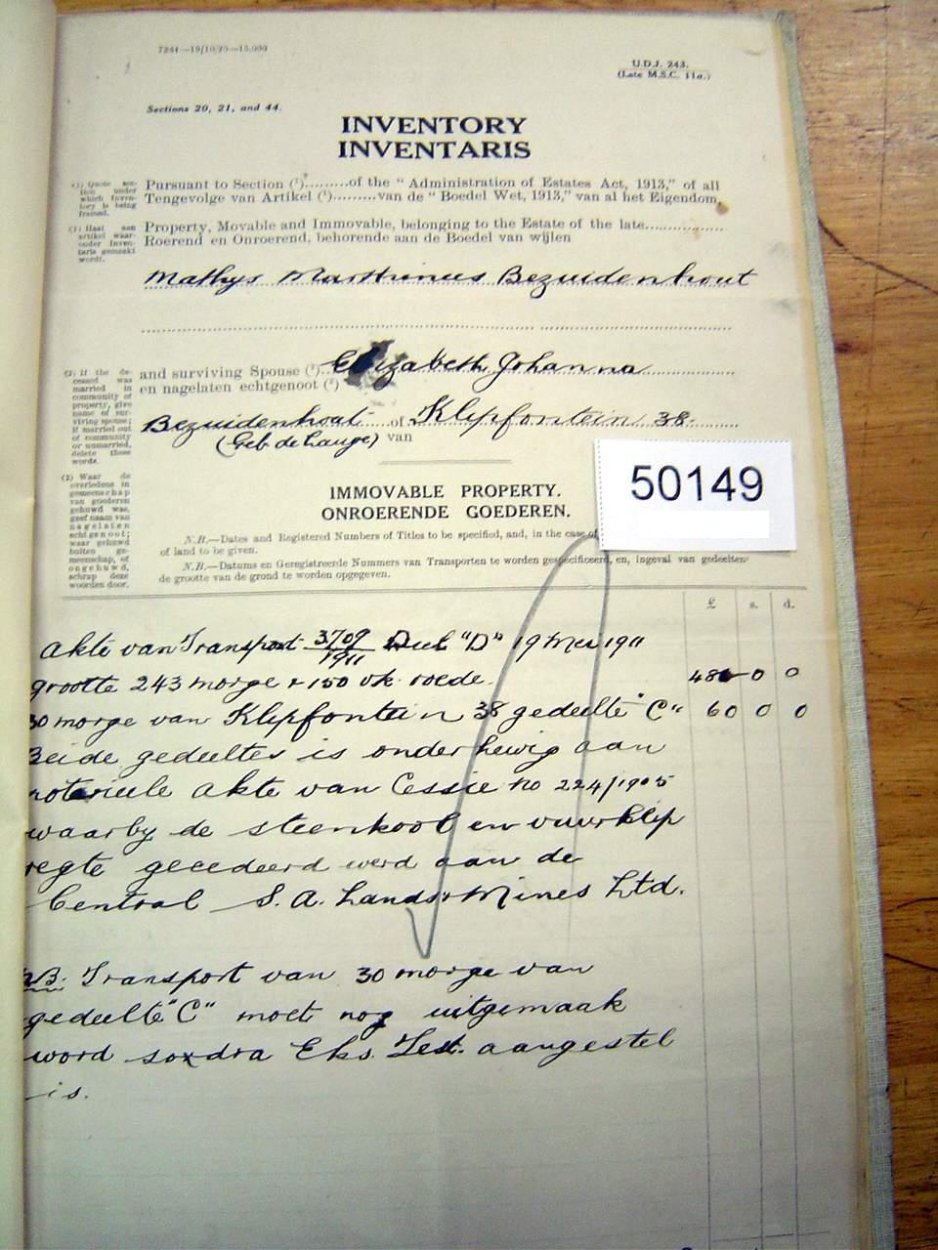 7284—19/10/25—15,000
U.D.J. 243.
(Late M.S.C. 11a.)
Sections 20, 21, and 44.
INVENTORY
INVENTARIS
(1) Quote section under which Inventory is being framed.
(1) Haal aan artikel waaronder Inventaris gemaakt wordt.
Pursuant to Section (¹).........of the "Administration of Estates Act, 1913," of all
Tengevolge van Artikel (¹).........van de "Boedel Wet, 1913," van al het Eigendom,
Property, Movable and Immovable, belonging to the Estate of the late
Roerend en Onroerend, behorende aan de Boedel van wijlen
Mathys Marthinus Bezuidenhout
(2) If the deceased was married in community of property, give name of surviving spouse; if married out of community or unmarried, delete these words.
and surviving Spouse (²) Elizabeth Johanna
en nagelaten echtgenoot (²)
Bezuidenhout of Klipfontein 38.
(Geb de Lange) van
(2) Waar de overledene in gemeenschap van goederen gehuwd was, geef naam van nagelaten echtgenoot; waar gehuwd buiten gemeenschap, of ongehuwd, schrap deze woorden door.
50149
IMMOVABLE PROPERTY.
ONROERENDE GOEDEREN.
N.B.—Dates and Registered Numbers of Titles to be specified, and, in the case of
of land to be given.
N.B.—Datums en Geregistreerde Nummers van Transporten te worden gespecificeerd, en, ingeval van gedeelten
de grootte van de grond te worden opgegeven.
£ s. d.
Akte van Transport 3709/1911 "D" 19 Mei 1911
grootte 243 morge + 150 vk. roede. 0 0
30 morge van Klipfontein 38 gedeelte "C" 60 0 0
Beide gedeeltes is onderhewig aan
notariele akte van Cessie no 224/1905
waarby de steenkool en vuurklip
regte gecedeerd werd aan de
Central S.A. Lands & Mines Ltd.
NB: Transport van 30 morge van
gedeelte "C" moet nog uitgemaak
word sodra Eks. Test. aangestel
is.